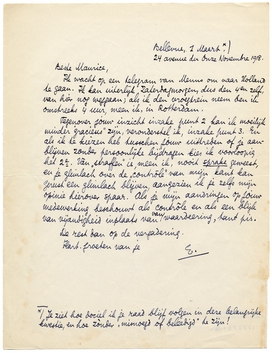 Bellevue, 1 Maart *)
24 avenue du Onze Novembre 1918.
Beste Maurice,
Ik wacht op een telegram van Menno om naar Holland
te gaan. Ik kan uiterlijk Zaterdagmorgen, dus den 4en zelf
van hier nog weggaan; als ik den vroegtrein neem ben ik
omstreeks 4 uur, meen ik, in Rotterdam.
Tegenover jouw inzicht inzake punt 2 kan ik moeilijk
minder gracieus zijn, veronderstel ik, inzake punt 3. En
als ik te kiezen heb tusschen jouw uittreden of je aan-
blijven zonder persoonlijke bijdragen kies ik voorloopig
het 2e. Van straffen is, meen ik, nooit sprake geweest,
en je glimlach over de 'controle' van mijn kant kan
gerust een glimlach blijven, aangezien ik je zelfs mijn
opinie hierover spaar. Als je mijn aandringen op jouw
medewerking beschouwt als controle en als een blijk
van vijandigheid inplaats van waardeering, tant pis.
De rest dan op de vergadering.
Hart. groeten van je
E.
*) Je ziet hoe sociaal ik je raad blijf volgen in deze belangrijke
kwestie, en hoe zonder 'mimosed of beleedigd' te zijn!